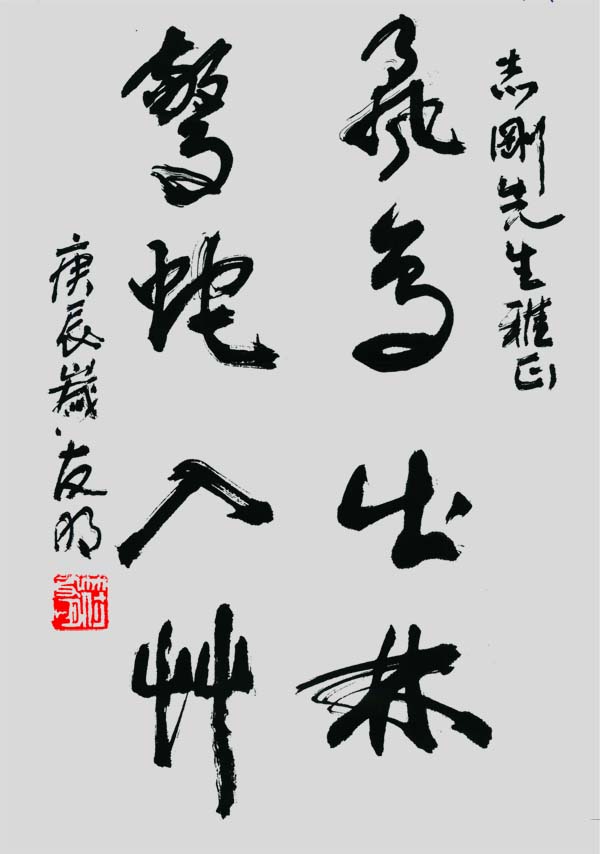 志刚先生雅正
飛鸟出林
驚蛇入艸
庚辰歲友明